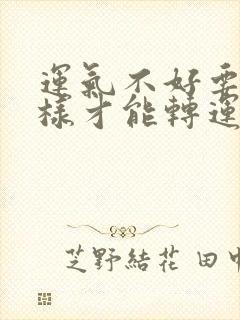 運氣不好要
樣才能轉運
芝野結花 田中